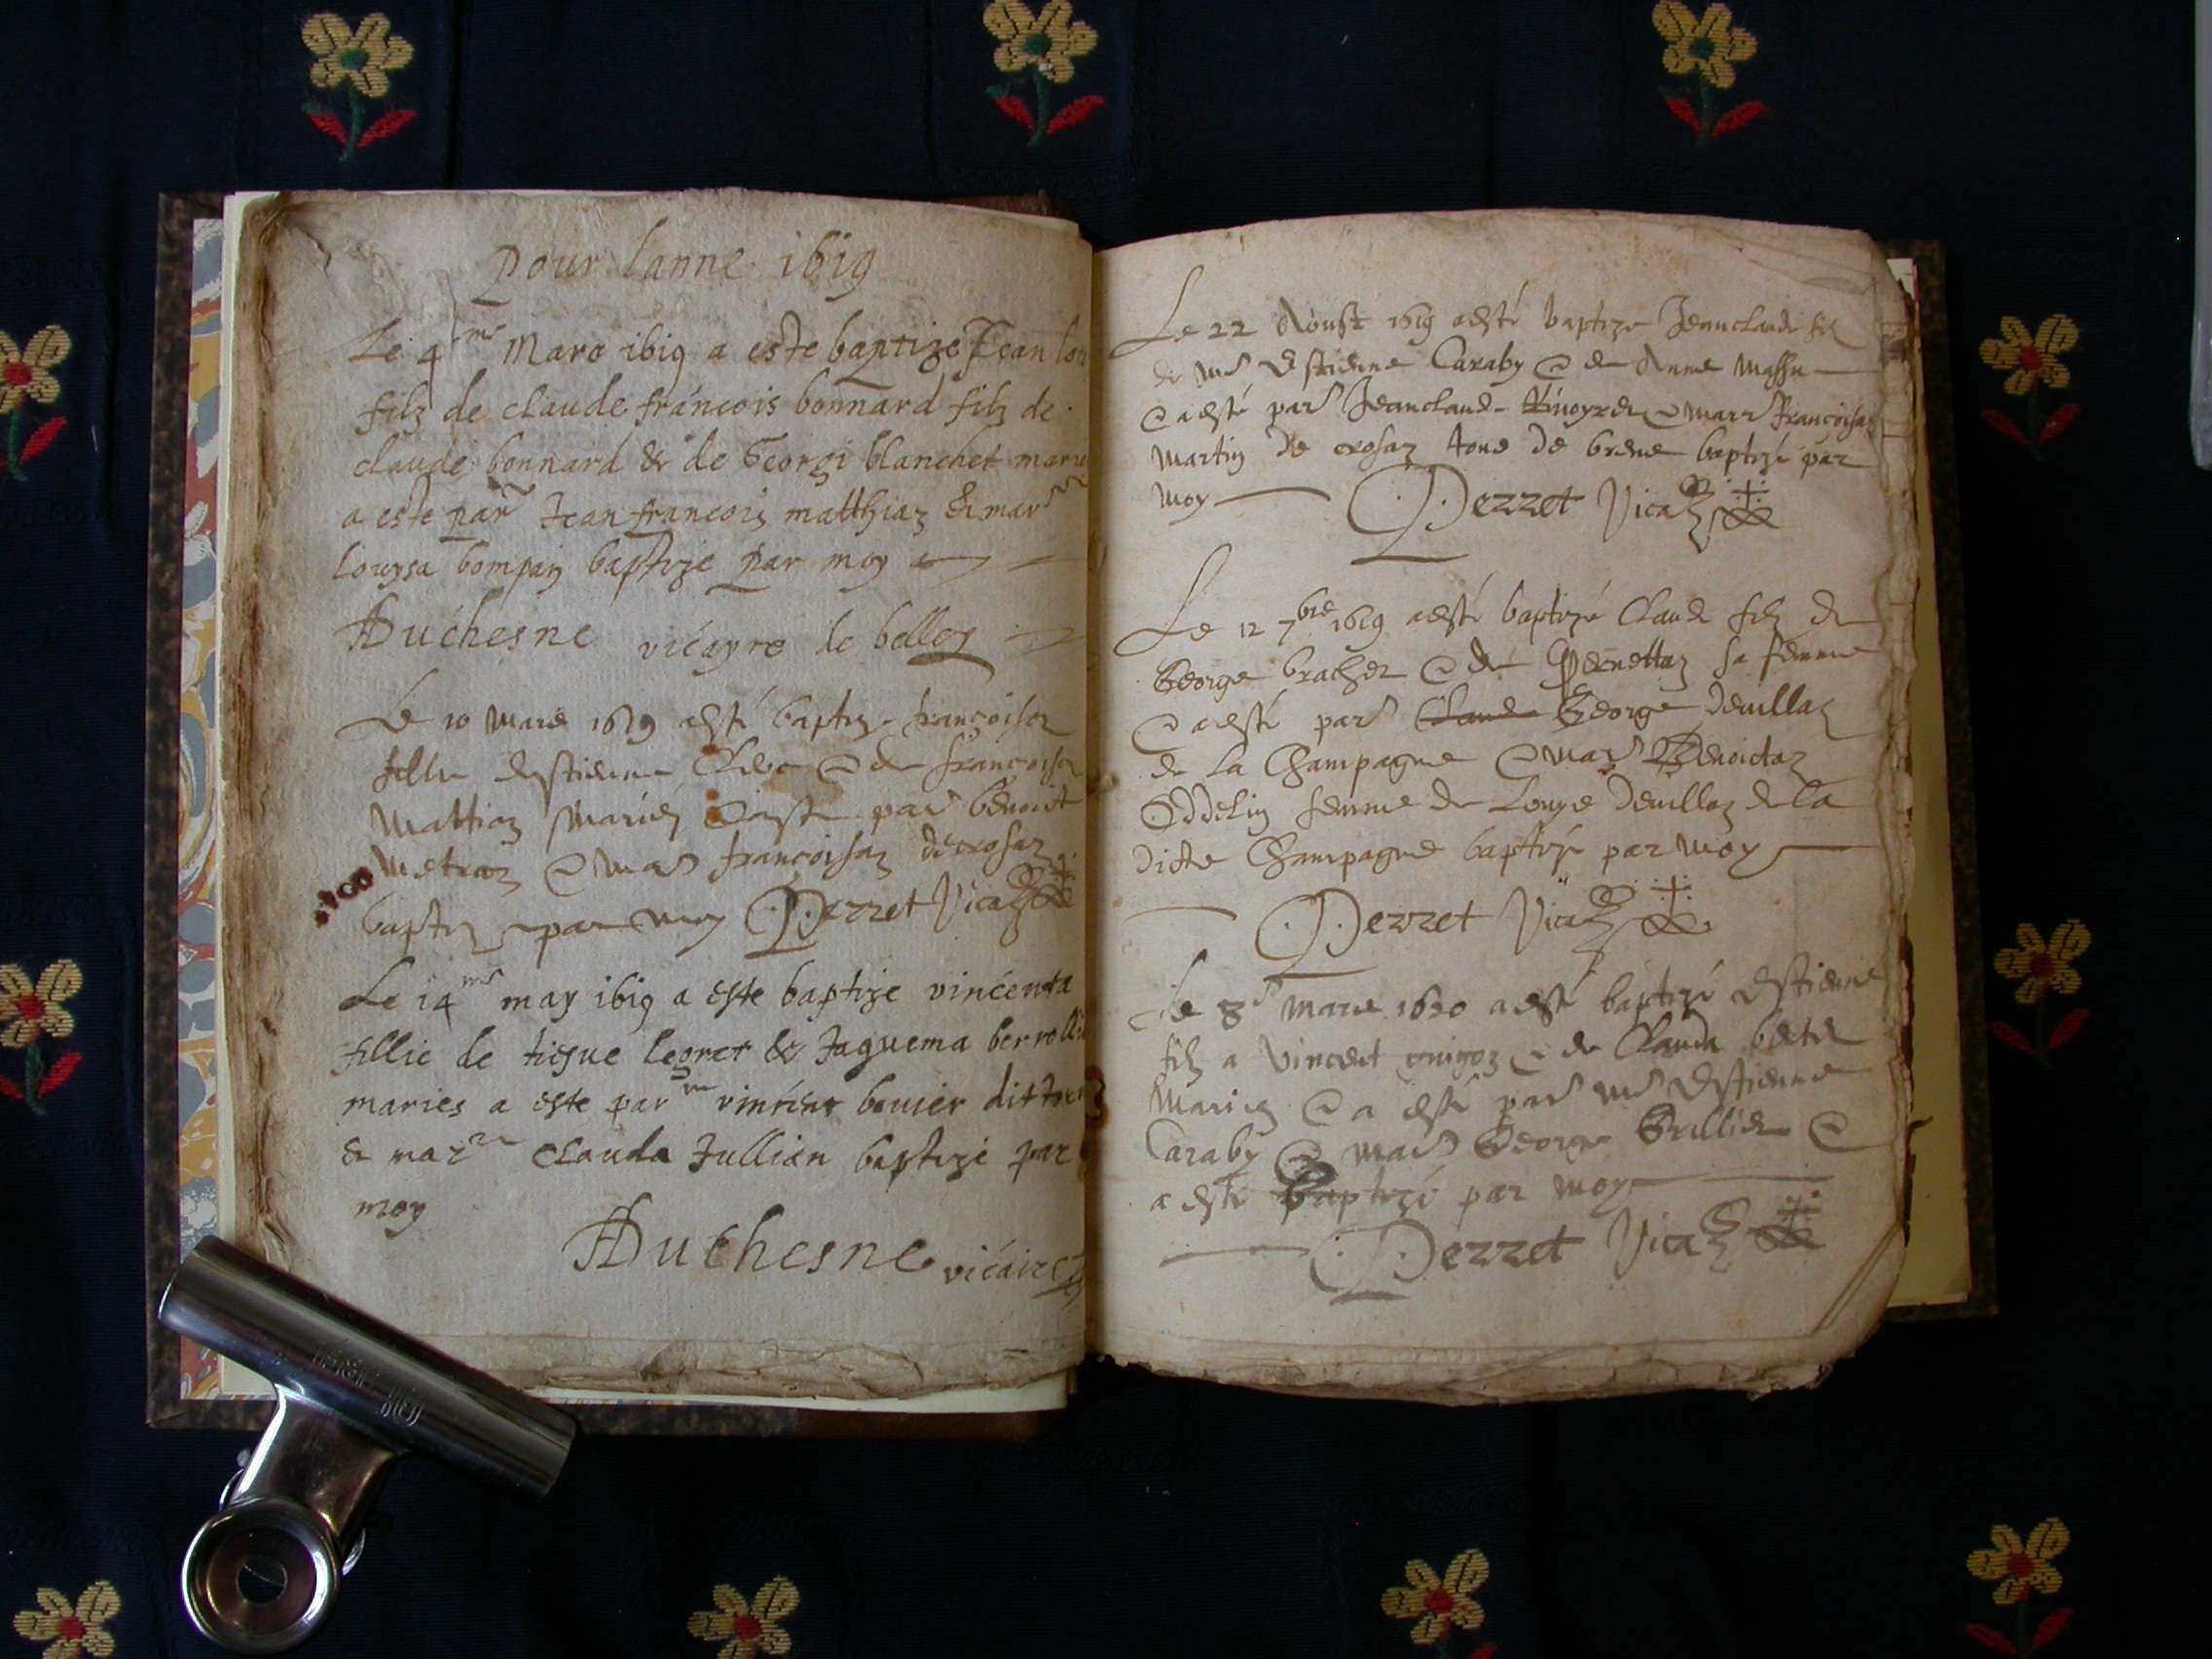 pour lanne 1619
Le 4me Mars 1619 a este baptize Jean
filz de claude francois bonnard filz de
claude bonnard & de Georgi blanchet marie
a este parn Jean francois matthiaz & marn
Louysa bompar baptize par moy
Duchesne vicayre de belley
Le 10 mars 1619 a esté baptize françoisaz
fille destienne et de françoisaz
Mattiaz Mariés a esté parn benoict
Metraz et marn francoisaz decrosaz
baptize par moy Pezzet Vica
Le 14me may 1619 a este baptize vincenta
fillie de Legret & Jaquema
maries a este parrn vincent bouier dit
& marrn Clauda Jullian baptizé par
moy
Duchesne vicaire
Le 22 Aoust 1619 a esté baptize Jean claude filz
de me Estienne Caraby et de Anne Massu
et a esté parn Jean claude et marr françoisaz
Martin de crosaz tous de brene baptizé par
moy Pezzet Vica
Le 12 7bre 1619 a esté baptizé Claude filz de
George bracher et de Pernettaz sa femme
et a esté parn Claude George Devillaz
de la Champagne et marn Benoictaz
Oddelin femme de Louys Devillaz de la
dicte Champagne baptizé par moy
Pezzet Vica
Le 8e mars 1620 a esté baptizé Estienne
filz a Vincent guigoz et de Clauda
Mariés et a esté parn me Estienne
Caraby et marn George Brillier et
a esté baptizé par moy
Pezzet Vica